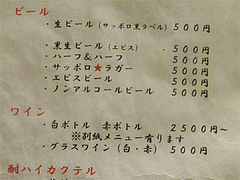 ビール
・生ビール(サッポロ黒ラベル) 500円
・黒生ビール(エビス) 500円
・ハーフ&ハーフ 500円
・サッポロ★ラガー 500円
・エビスビール 500円
・ノンアルコールビール 500円
ワイン
・白ボトル 赤ボトル 2500円~
※別紙メニュー有ります
・グラスワイン(白・赤) 500円
酎ハイカクテル